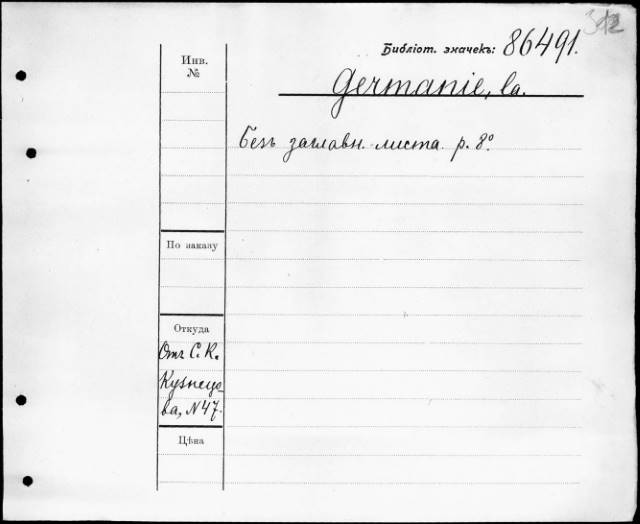 Библіот. значекъ: 86491.
Инв.
№
Germanie, la.
Безъ заглавн. листа. р. 8°
По заказу
Откуда
Отъ С. К.
Кузнецо-
ва, №47.
Цѣна